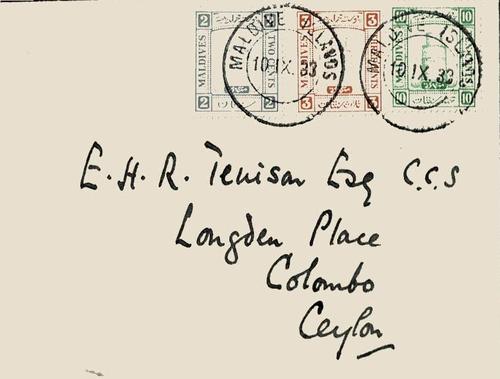 2 2 3 3 10 10
MALDIVES TWO CENTS MALDIVES MALDIVES
2 2 3 3 10 10
MALDIVE ISLANDS
10 IX. 33
MALDIVE ISLANDS
10 IX. 33
E. H. R. Tenison Esq C.C.S
Longden Place
Colombo
Ceylon